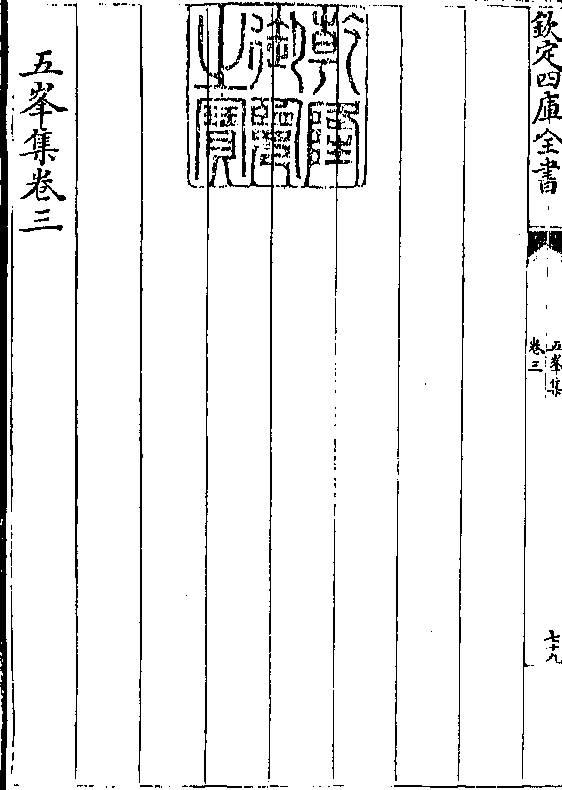 欽定四庫全書
五峯集
卷三
七十九
乾隆
御覽
之寶
五峯集卷三